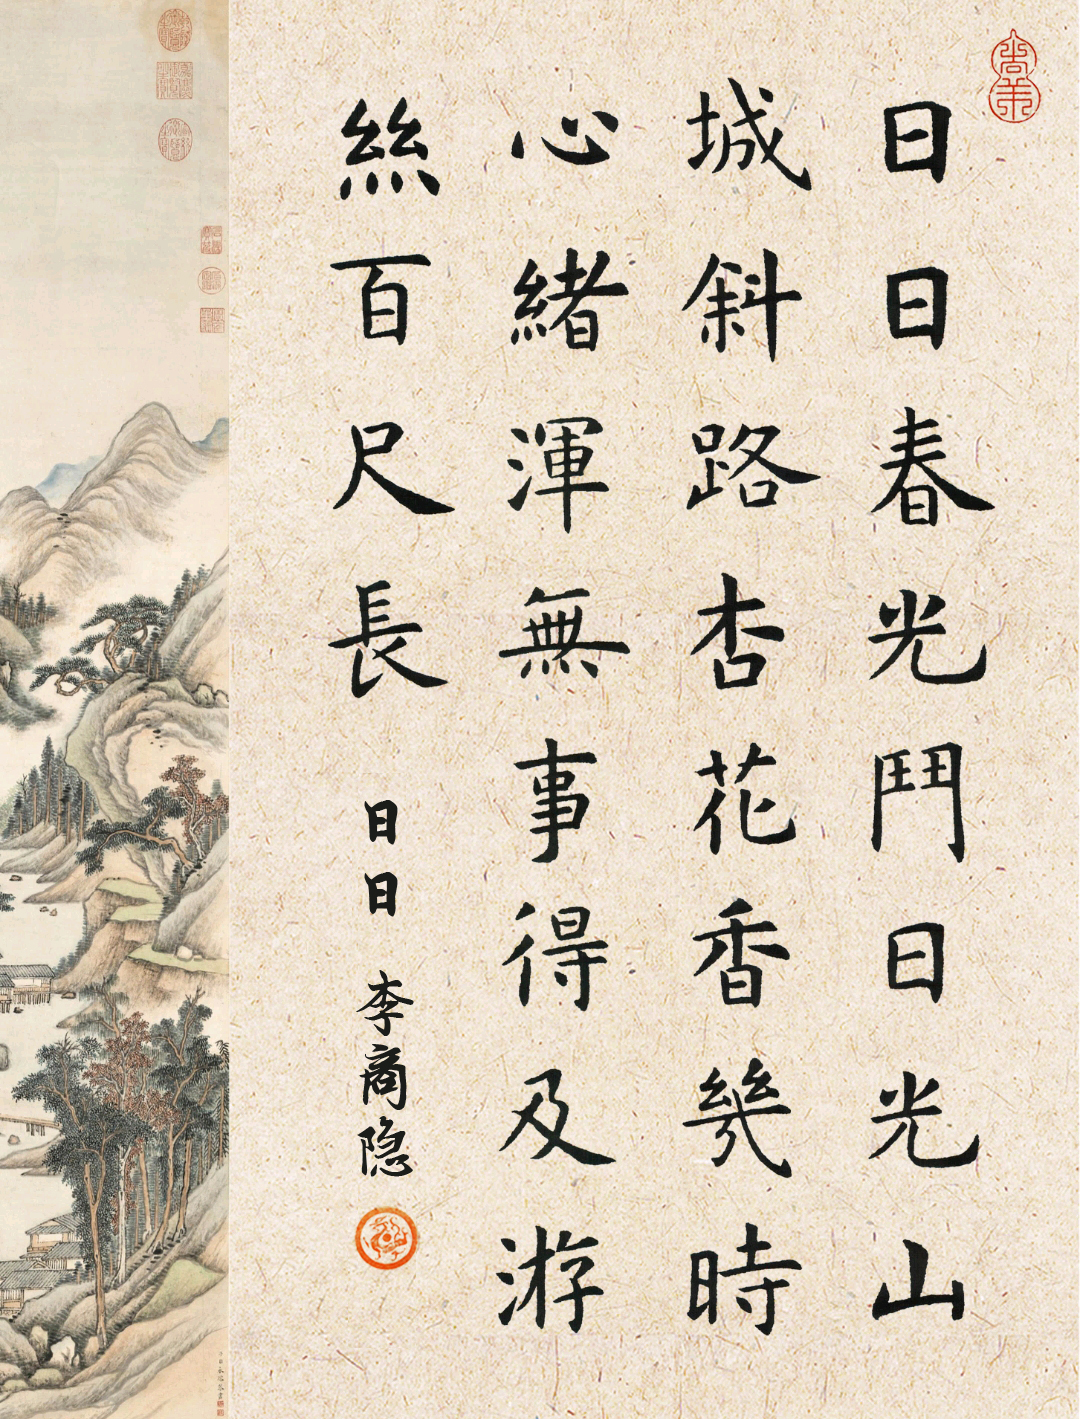 日日春光鬥日光山
城斜路杏花香幾時
心緒渾無事得及游
絲百尺長
日日 李商隐
尚美